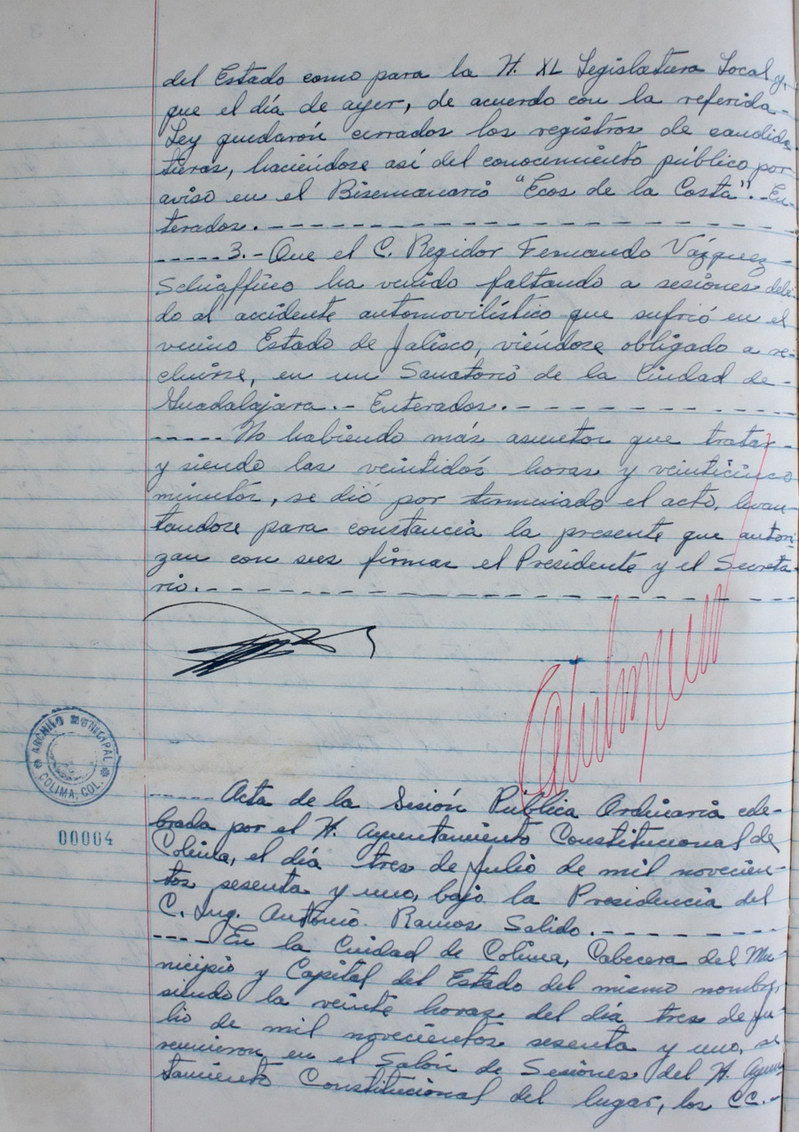 del Estado como para la H. XL Legislatura Local y,
que el día de ayer, de acuerdo con la referida
Ley quedaron cerrados los registros de candida
turas, haciéndose así del conocimiento público por
aviso en el Bisemanario "Ecos de la Costa".- En-
terados.- - - - - - - - - - - - - - - - - - - - - -
- - - - - 3.- Que el C. Regidor Fernando Vázquez
Schiaffino ha venido faltando a sesiones debi-
do al accidente automovilístico que sufrió en el
vecino Estado de Jalisco, viéndose obligado a re-
cluirse, en un Sanatorio de la Ciudad de-
Guadalajara.- Enterados.- - - - - - - - - -
- - - - - No habiendo más asuntos que tratar-
y siendo las veintidós horas y veinticinco
minutos, se dió por terminado el acto, levan-
tandose para constancia la presente que autori-
zan con sus firmas el Presidente y el Secreta-
rio.- - - - - - - - - - - - - - - - - - - - - - -
ARCHIVO MUNICIPAL
COLIMA, COL.
00004
- - - - - Acta de la Sesión Pública Ordinaria cele-
brada por el H. Ayuntamiento Constitucional de
Colima, el día tres de Julio de mil novecien-
tos sesenta y uno, bajo la Presidencia del
C. Ing. Antonio Ramos Salido.- - - - - - - - -
- - - - - En la Ciudad de Colima, Cabecera del Mu-
nicipio y Capital del Estado del mismo nombre,
siendo la veinte horas del día tres de ju-
lio de mil novecientos sesenta y uno, se
reunieron en el Salón de Sesiones del H. Ayun-
tamiento Constitucional del lugar, los CC.-